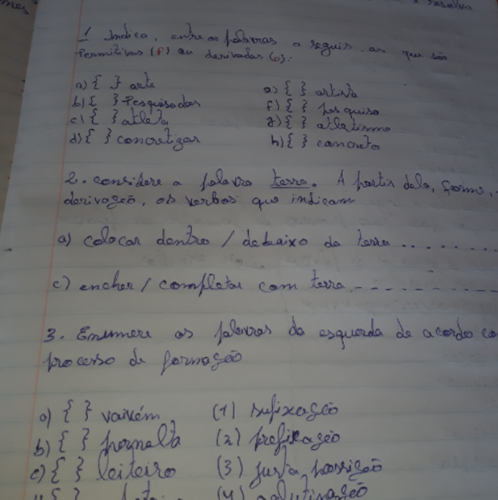 1 Indica, entre as palavras a seguir, as que são
Permitivas (P) ou derivadas (D).
a) { } arte
b) { } Pesquisador
c) { } atleta
d) { } concretizar
e) { } artista
f) { } pesquisa
g) { } atletismo
h) { } concreto
2. considere a palavra terra. A partir dela, forme,
derivação, os verbos que indicam
a) colocar dentro / debaixo da terra ........
c) encher / completar com terra, ------------
3. Enumere as palavras da esquerda de acordo co
processo de formação
a) { } vaivém (1) sufixação
b) { } pernalta (2) prefixação
c) { } leiteiro (3) justa possição
(4) aglutinação